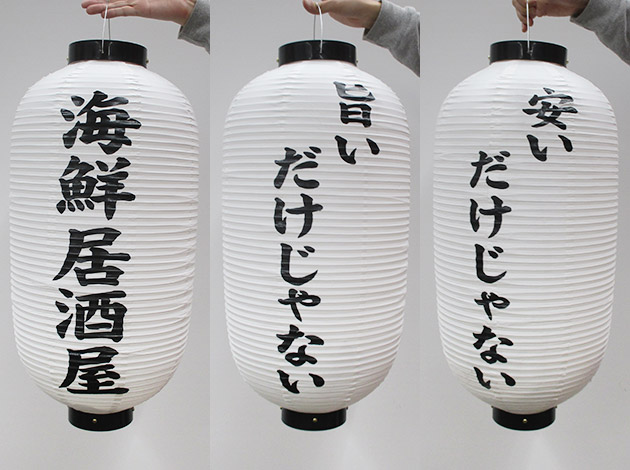 海鮮居酒屋
旨い
だけじゃない
安い
だけじゃない